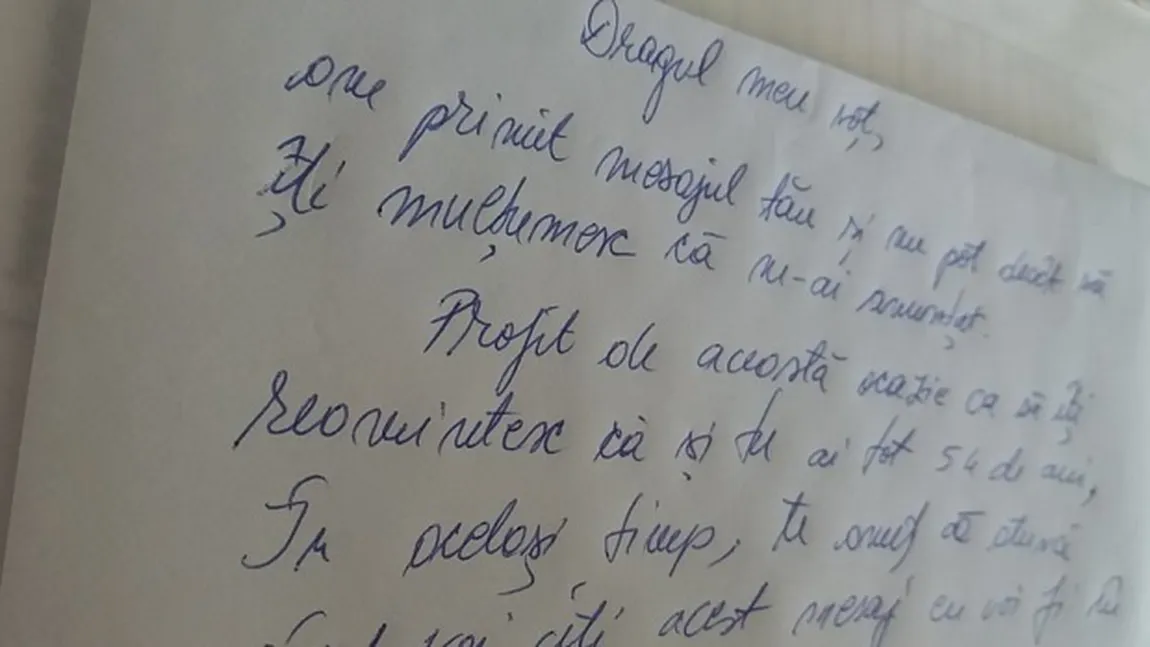 Dragul meu soț,
am primit mesajul tău și nu pot decât să
Îți mulțumesc că m-ai anunțat.
Profit de această ocazie ca să îți
reamintesc că și tu ai tot 54 de ani,
În același timp, te anunț că atunci
Când vei citi acest mesaj eu voi fi la